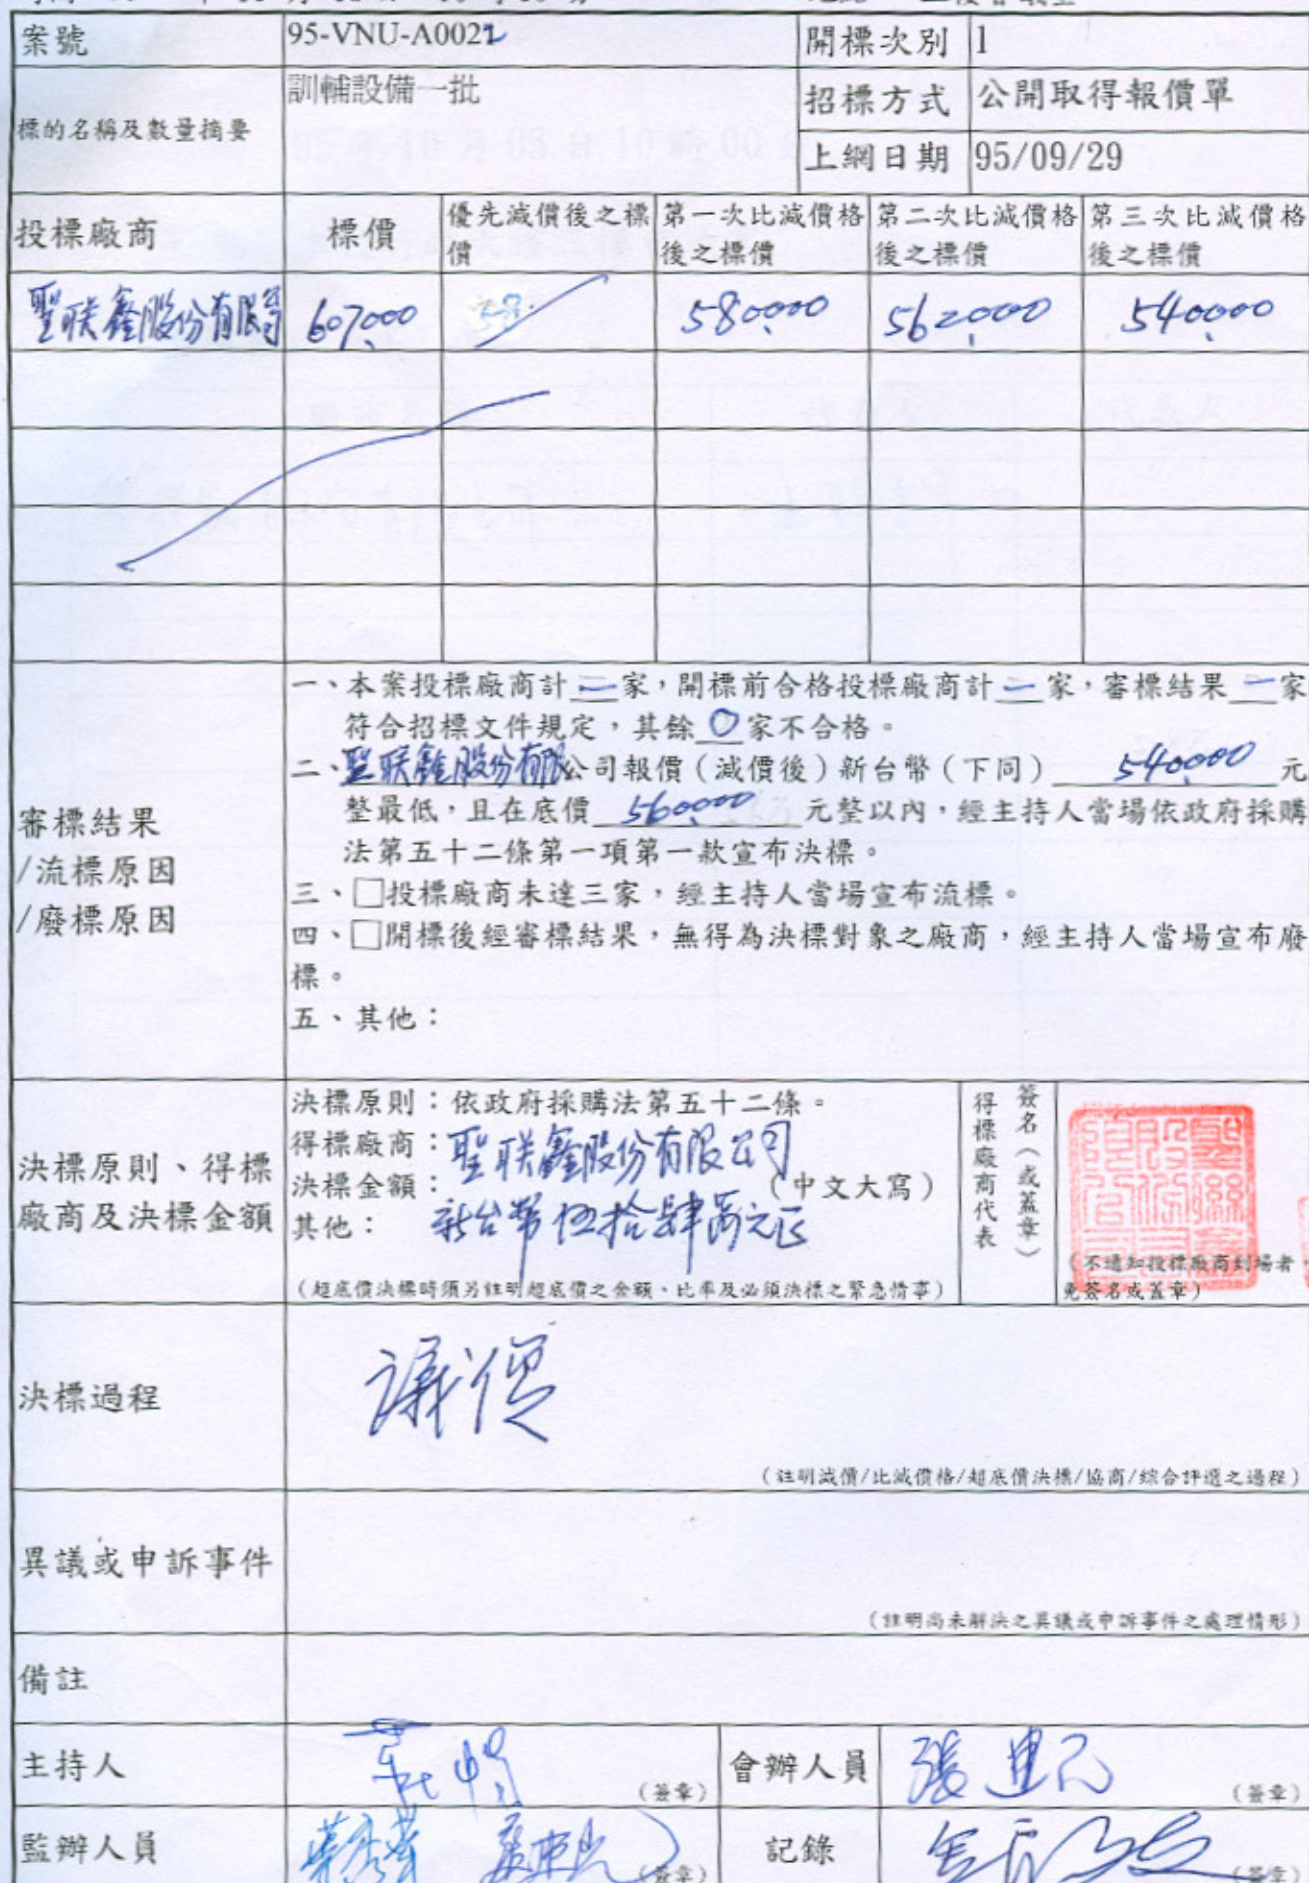 案號 95-VNU-A0022 開標次別 1
標的名稱及數量摘要 訓輔設備一批 招標方式 公開取得報價單
上網日期 95/09/29
投標廠商 標價 優先減價後之標價 第一次比減價格後之標價 第二次比減價格後之標價 第三次比減價格後之標價
聖联鑫股份有限公司 607,000 580,000 562,000 540,000
審標結果
/流標原因
/廢標原因
一、本案投標廠商計一家，開標前合格投標廠商計一家，審標結果一家
符合招標文件規定，其餘0家不合格。
二、聖联鑫股份有限公司報價（減價後）新台幣（下同）540,000元
整最低，且在底價560,000元整以內，經主持人當場依政府採購
法第五十二條第一項第一款宣布決標。
三、□投標廠商未達三家，經主持人當場宣布流標。
四、□開標後經審標結果，無得為決標對象之廠商，經主持人當場宣布廢
標。
五、其他：
決標原則、得標
廠商及決標金額
決標原則：依政府採購法第五十二條。
得標廠商：聖联鑫股份有限公司
決標金額：新台幣伍拾肆萬元正（中文大寫）
其他：
（超底價決標時須另註明超底價之金額、比率及必須決標之緊急情事）
得標廠商代表
簽名（或蓋章）
（不通知投標廠商到場者，
免簽名或蓋章）
決標過程 議價
（註明減價/比減價格/超底價決標/協商/綜合評選之過程）
異議或申訴事件
（註明尚未解決之異議或申訴事件之處理情形）
備註
主持人 （簽章） 會辦人員 （簽章）
監辦人員 （簽章） 記錄 （簽章）